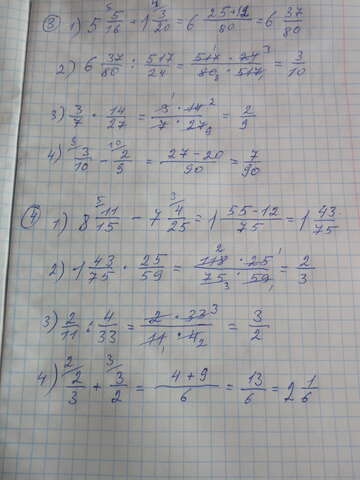 ③ 1) 5 5/16 + 1 3/20 = 6 25+12/80 = 6 37/80
2) 6 37/80 : 517/24 = 517 · 24/80 · 517 = 3/10
3) 3/7 · 14/27 = 3 · 14/7 · 27 = 2/9
4) 3/10 - 2/9 = 27 - 20/90 = 7/90
④ 1) 8 11/15 - 7 4/25 = 1 55-12/75 = 1 43/75
2) 1 43/75 · 25/59 = 118 · 25/75 · 59 = 2/3
3) 2/11 : 4/33 = 2 · 33/11 · 4 = 3/2
4) 2/3 + 3/2 = 4+9/6 = 13/6 = 2 1/6